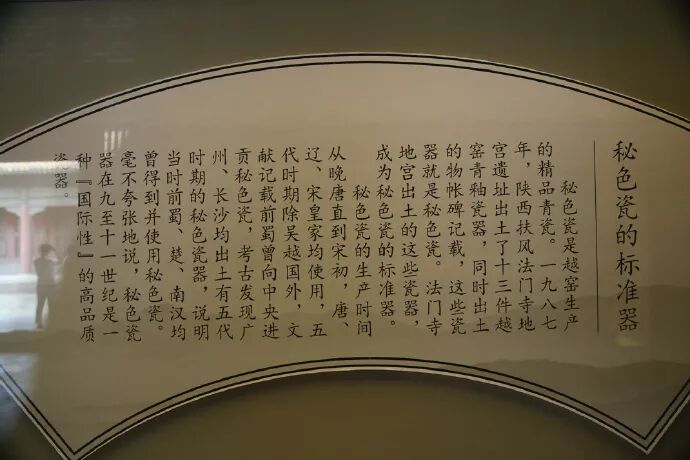 秘色瓷的标准器
秘色瓷是越窑生产
的精品青瓷。一九八七
年，陕西扶风法门寺地
宫遗址出土了十三件越
窑青釉瓷器，同时出土
的物帐碑记载，这些瓷
器就是秘色瓷。法门寺
地宫出土的这些瓷器，
成为秘色瓷的标准器。
秘色瓷的生产时间
从晚唐直到宋初，唐、
辽、宋皇家均使用，五
代时期除吴越国外，文
献记载前蜀曾向中央进
贡秘色瓷，考古发现广
州、长沙均出土有五代
时期的秘色瓷器，说明
当时前蜀、楚、南汉均
曾得到并使用秘色瓷。
毫不夸张地说，秘色瓷
器在九至十一世纪是一
种『国际性』的高品质
瓷器。